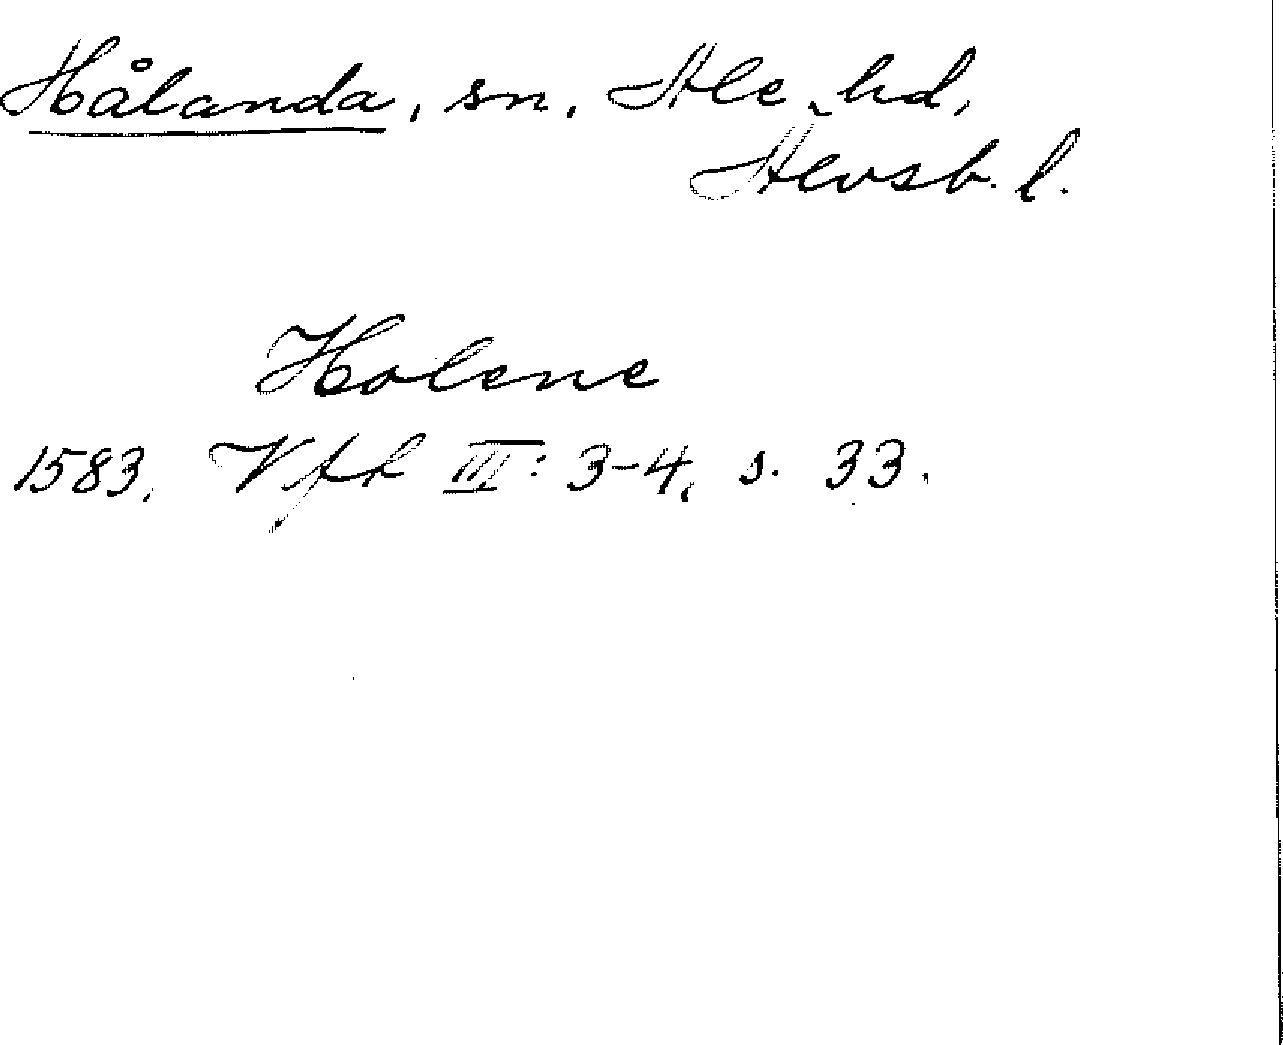 Hålanda, sn, Ale hd,
Älvsb. l.
Holene
1583, Vfh III: 3-4, s. 33.